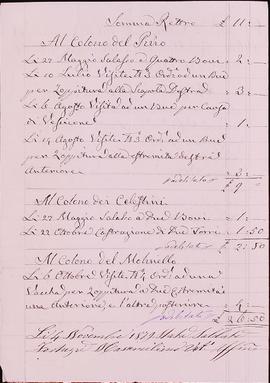 Somma Retro £ 11:-
Al Colono del Pino
Li 27 Maggio Salasso a Quattro Bovi " 2:-
Li 10 Luglio Visite N 3 ad un Bue
per Zoppitura alla Spalla Destra " 3:-
Li 6 Agosto Visita ad un Bue per Causa
di " 1:-
Li 19 Agosto Visite N 3 ad un Bue
per Zoppitura alla estremità destra
Anteriore " 3:-
£ 9
Al Colono dei Celestini
Li 27 Maggio Salasso a Due Bovi " 1:-
Li 22 Ottobre Castrazione di Due Torri " 1:50
£ 2:50
Al Colono del Molinello
Li 6 Ottobre Visite N 4 ad una
Vacca per Zoppitura a Due Estremità
una Anteriore e l'altra posteriore " 4:-
£ 26:50
Li 4 Novembre 1879 Saldato